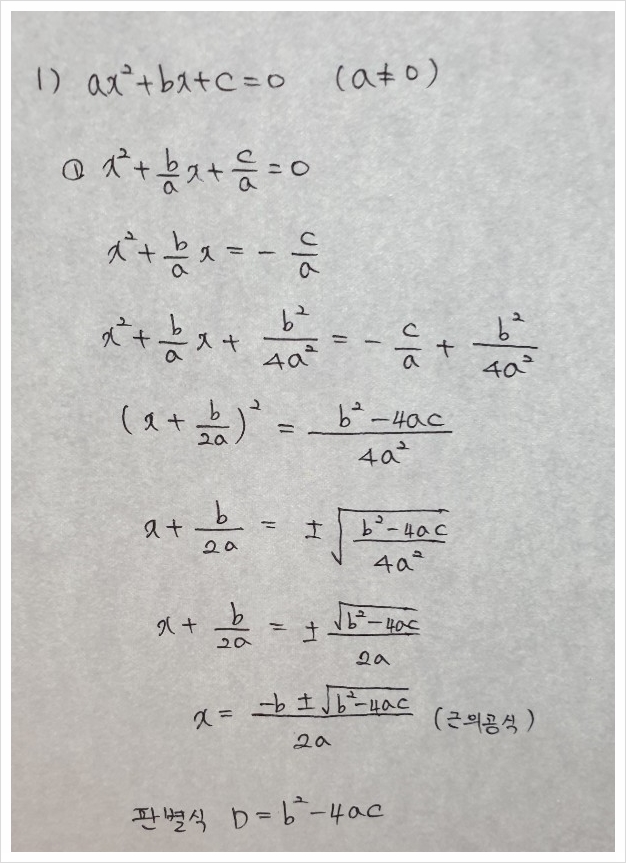 1) ax²+bx+c=0 (a≠0)
① x²+b/a x+c/a=0
x²+b/a x=-c/a
x²+b/a x+b²/4a²=-c/a+b²/4a²
(x+b/2a)²=b²-4ac/4a²
x+b/2a=±√(b²-4ac/4a²)
x+b/2a=±√(b²-4ac)/2a
x=-b±√(b²-4ac)/2a (근의공식)
판별식 D=b²-4ac